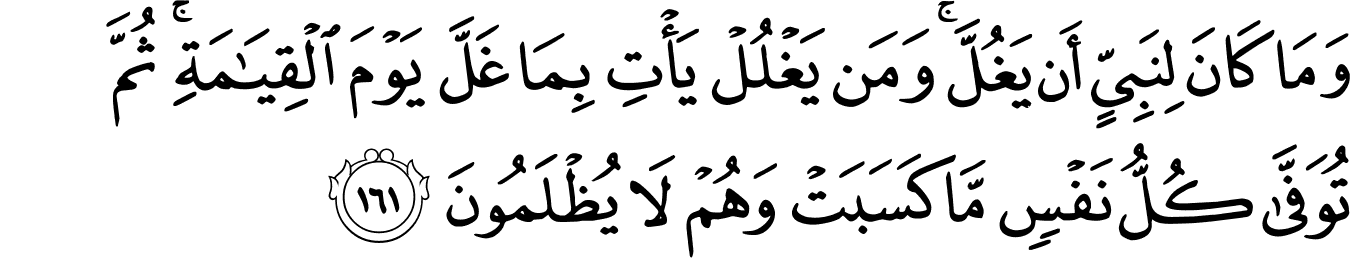 وَمَا كَانَ لِنَبِيٍّ أَن يَغُلَّ ۚ وَمَن يَغْلُلْ يَأْتِ بِمَا غَلَّ يَوْمَ ٱلْقِيَـٰمَةِ ۚ ثُمَّ
تُوَفَّىٰ كُلُّ نَفْسٍ مَّا كَسَبَتْ وَهُمْ لَا يُظْلَمُونَ ١٦١